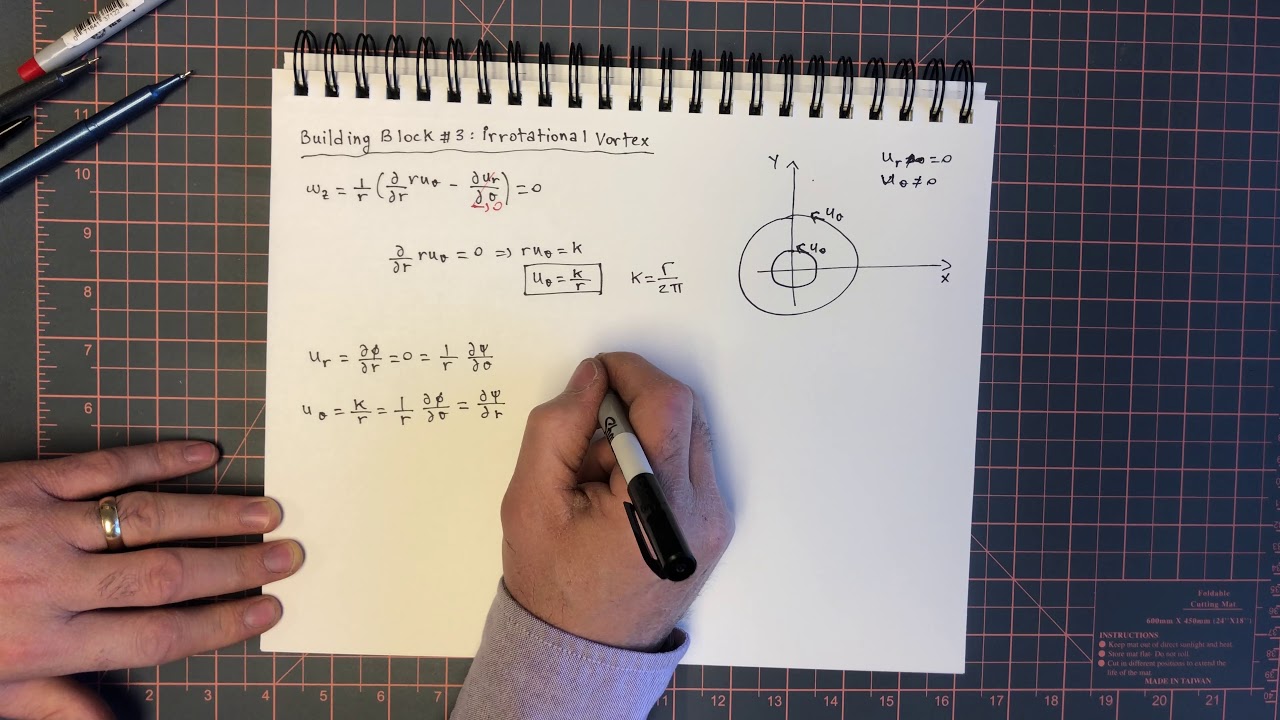 Building Block #3: Irrotational Vortex
ω_z = 1/r (∂/∂r ru_θ − ∂u_r/∂θ) = 0
→ 0
∂/∂r ru_θ = 0 => ru_θ = K
u_θ = K/r
K = Γ/2π
u_r = ∂ϕ/∂r = 0 = 1/r ∂ψ/∂θ
u_θ = K/r = 1/r ∂ϕ/∂θ = ∂ψ/∂r
u_r = 0
u_θ ≠ 0
Y
u_θ
u_θ
X
11
10
9
8
7
6
2
3
4
5
6
7
8
9
11
12
13
14
15
16
17
18
19
20
21
Foldable
Cutting Mat
600mm X 450mm (24"X18")
INSTRUCTIONS
Keep mat out of direct sunlight and heat.
Store mat flat. Do not soil.
Cut in different positions to extend the
life of the mat.
MADE IN TAIWAN